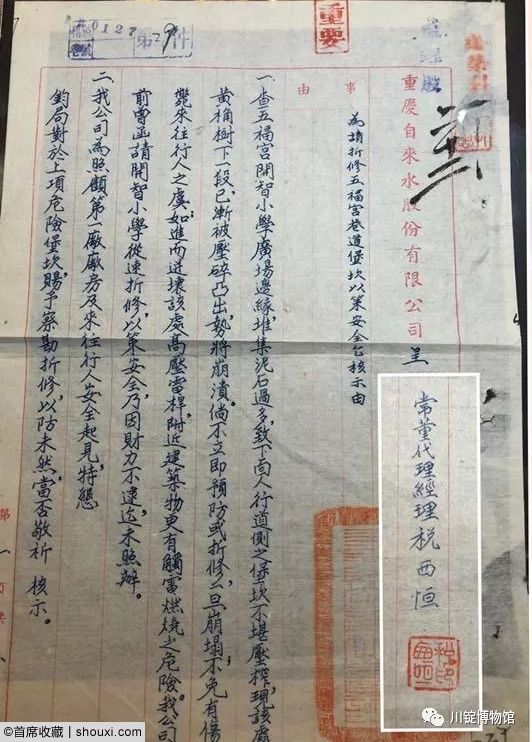 重要
0127
第29件
重慶自來水股份有限公司 呈
事由
為請折修五福宮巷道堡坎以策安全乞核示由
一 查五福宮開智小學廣場邊緣堆集泥石過多,致下面人行道側之堡坎不堪壓榨,現該處
黃桷樹下一段已漸被壓碎凸出,勢將崩潰。倘不立即預防或折修,么旦崩塌,不免有傷
斃來往行人之虞;如進而迸壞該處高壓電桿,附近建築物更有觸電燃燒之危險。我公司
前曾函請開智小學從速折修,以策安全,乃因財力不逮,迄未照辦。
二 我公司為照顧第一廠廠房及來往行人安全起見,特懇
鈞局對於上項危險堡坎,賜予察勘折修,以防未然,當否敬祈 核示。
常董代理經理稅西恒
川锭博物馆
@首席收藏 | shouxi.com